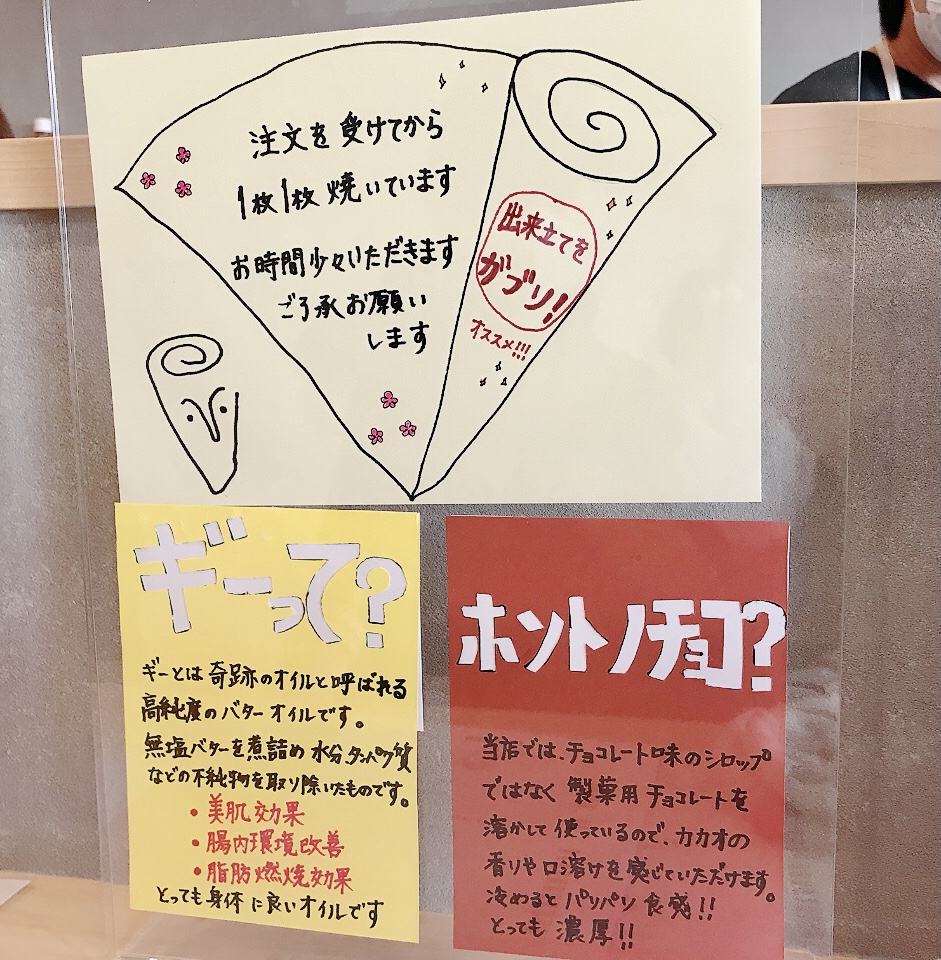 注文を受けてから
1枚1枚焼いています
お時間少々いただきます
ご了承お願い
します
出来立てを
ガブリ!
オススメ!!!
ギーって?
ギーとは奇跡のオイルと呼ばれる
高純度のバターオイルです。
無塩バターを煮詰め水分、タンパク質
などの不純物を取り除いたものです。
・美肌効果
・腸内環境改善
・脂肪燃焼効果
とっても身体に良いオイルです
ホントノチョコ?
当店では、チョコレート味のシロップ
ではなく製菓用チョコレートを
溶かして使っているので、カカオの
香りや口溶けを感じていただけます。
冷めるとパリパリ食感!!
とっても濃厚!!